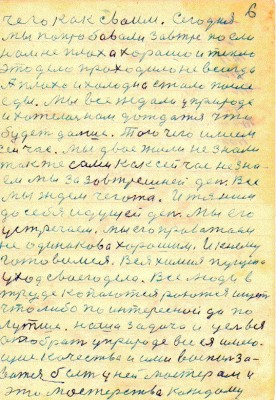 6
чего как своим. Сегодня
мы попробовали завтра после
нам не плоха хорашо и тепло
это дело проходило не всегда
А плохо и холодна стало после
еды. Мы все ждали у природе
и хотела нам дождатя что
будет далше. Того чего имеем
сейчас. Мы двое жили не знали
так же сами как сейчас не зна-
ем мы за завтрешней ден. Все
мы ждем чегота. И тяним
до себя идущей ден. Мы его
устречаем. мы его праважаем
не одинакова хорошим. И к нему
готовился. Вся химия пущена
уход своего дела. Все люди в
труде копаются роются ищут
что либо по интересной да по
лутше. наша задача и цел вся
отобрат у природе вся имею-
щие качества и ими воевит за-
ватя быть у ней мастерам и
это мастерства каждому